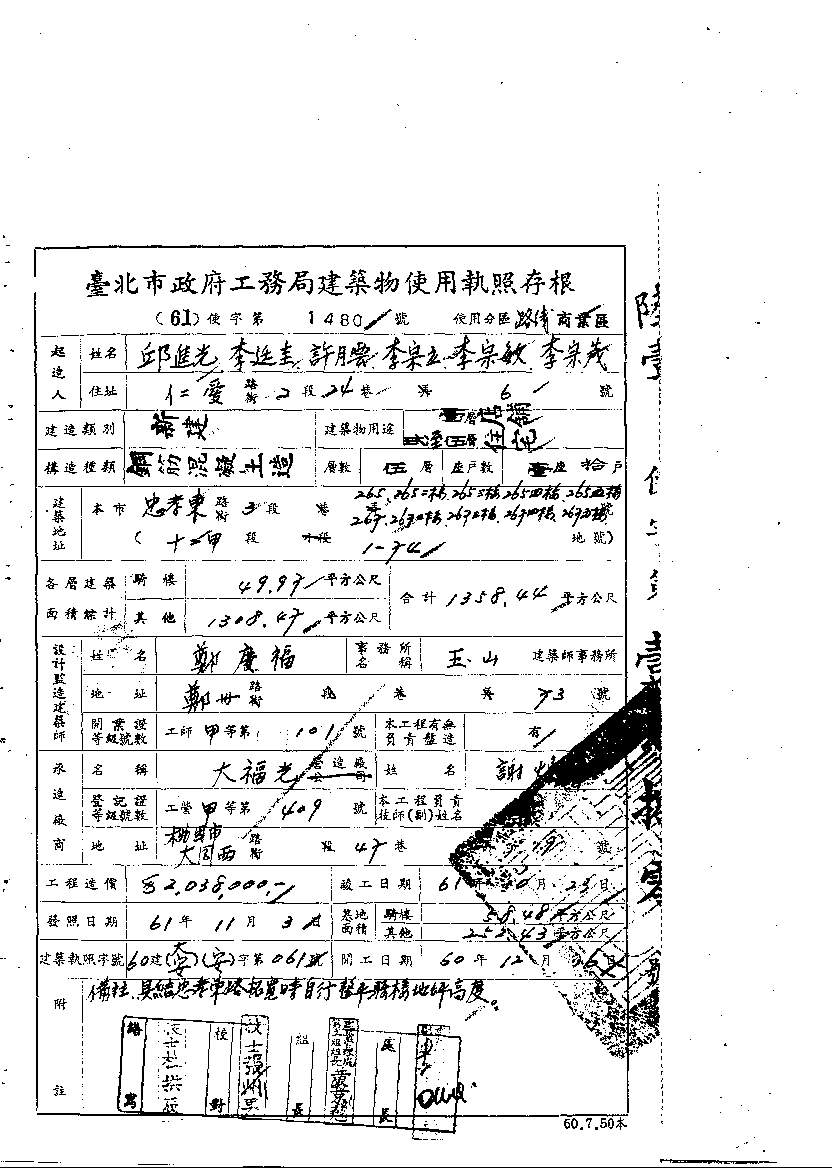 臺北市政府工務局建築物使用執照存根
(61) 使字第 1480 號 使用分區 路線商業區
起造人 姓名 邱進光 李延圭 許月雲 李宗立 李宗敏 李宗茂
住址 仁愛 路街 2 段 24 巷 弄 6 號
建造類別 新建 建築物用途 壹層店舖
貳至伍層住宅
構造種類 鋼筋混凝土造 層數 伍 層 座戶數 壹座 拾戶
建築地址 本市 忠孝東 路街 3 段 巷 265、265二樓、265三樓、265四樓、265五樓
267、267二樓、267三樓、267四樓、267五樓 號
( 十二甲 段 小段 1-74 地號)
各層建築面積總計 騎樓 49.97 平方公尺 合計 1358.44 平方公尺
其他 1308.47 平方公尺
設計監造建築師 姓名 鄭慶福 事務所名稱 玉山 建築師事務所
地址 鄭州 路街 段 巷 弄 73 號
開業證等級號數 工師 甲 等第 101 號 本工程有無負責監造 有
承造廠商 名稱 大福光 營造廠公司 姓名 謝
登記證等級號數 工營 甲 等第 409 號 本工程負責技師(副)姓名
地址 桃園市 路街 段 47 巷 19 號
工程造價 2,038,000,- 竣工日期 61 年 10 月 23 日
發照日期 61 年 11 月 3 日 基地面積 騎樓 58.48 平方公尺
其他 252.43 平方公尺
建築執照字號 60建(大安)(安)字第061號 開工日期 60 年 12 月 26 日
附註 備註:具結忠孝東路拓寬時自行整平騎樓地坪高度。
繕寫 校對 組長 處長
60.7.50本